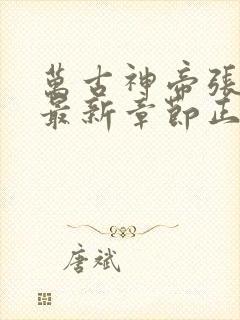 萬古神帝張
最新章節正
唐斌